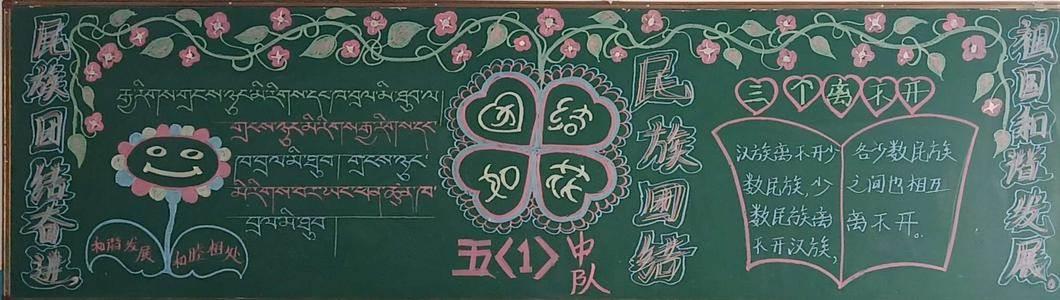 民族团结奋进,
རྒྱ་རིགས་གྲངས་ཉུང་མི་རིགས་དང་ཁ་བྲལ་མི་ཐུབ་ལ།
གྲངས་ཉུང་མི་རིགས་རྒྱ་རིགས་དང་
ཁ་བྲལ་མི་ཐུབ། གྲངས་ཉུང་
མི་རིགས་བར་ཡང་ཕན་ཚུན་ཁ་
བྲལ་མི་ཐུབ།
和谐发展
和睦相处
团结
如花
五〈1〉中队
民族團结
三个离不开
汉族离不开少
数民族,少
数民族离
不开汉族,
各少数民族
之间也相互
离不开。
祖国和谐发展。